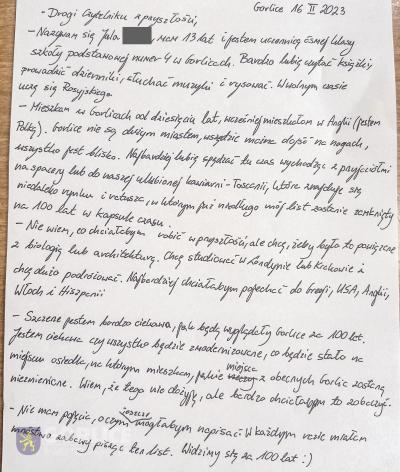 Gorlice 16 II 2023
- Drogi Czytelniku z przyszłości,
- Nazywam się Julia, mam 13 lat i jestem uczennicą ósmej klasy
szkoły podstawowej numer 4 w Gorlicach. Bardzo lubię czytać książki,
prowadzić dzienniki, słuchać muzyki i rysować. W wolnym czasie
uczę się Rosyjskiego.
- Mieszkam w Gorlicach od dziesięciu lat, wcześniej mieszkałam w Anglii (jestem
Polką). Gorlice nie są dużym miastem, wszędzie można dojść na nogach,
wszystko jest blisko. Najbardziej lubię spędzać tu czas wychodząc z przyjaciółmi
na spacery lub do naszej ulubionej kawiarni - Toscanii, która znajduje się
niedaleko rynku i ratusza, w którym już niedługo mój list zostanie zamknięty
na 100 lat w kapsule czasu.
- Nie wiem, co chciałabym robić w przyszłości, ale chcę, żeby było to powiązane
z biologią lub architekturą. Chcę studiować w Londynie lub Krakowie i
chcę dużo podróżować. Najbardziej chciałabym pojechać do Grecji, USA, Anglii,
Włoch i Hiszpanii
- Szczerze jestem bardzo ciekawa, jak będą wyglądały Gorlice za 100 lat.
Jestem ciekawa czy wszystko będzie zmodernizowane, co będzie stało na
miejscu osiedla, na którym mieszkam, jakie miejsca z obecnych Gorlic zostaną
niezmienione. Wiem, że tego nie dożyję, ale bardzo chciałabym to zobaczyć.
- Nie mam pojęcia, o czym jeszcze mogłabym napisać. W każdym razie miałam
mnóstwo zabawy pisząc ten list. Widzimy się za 100 lat :)